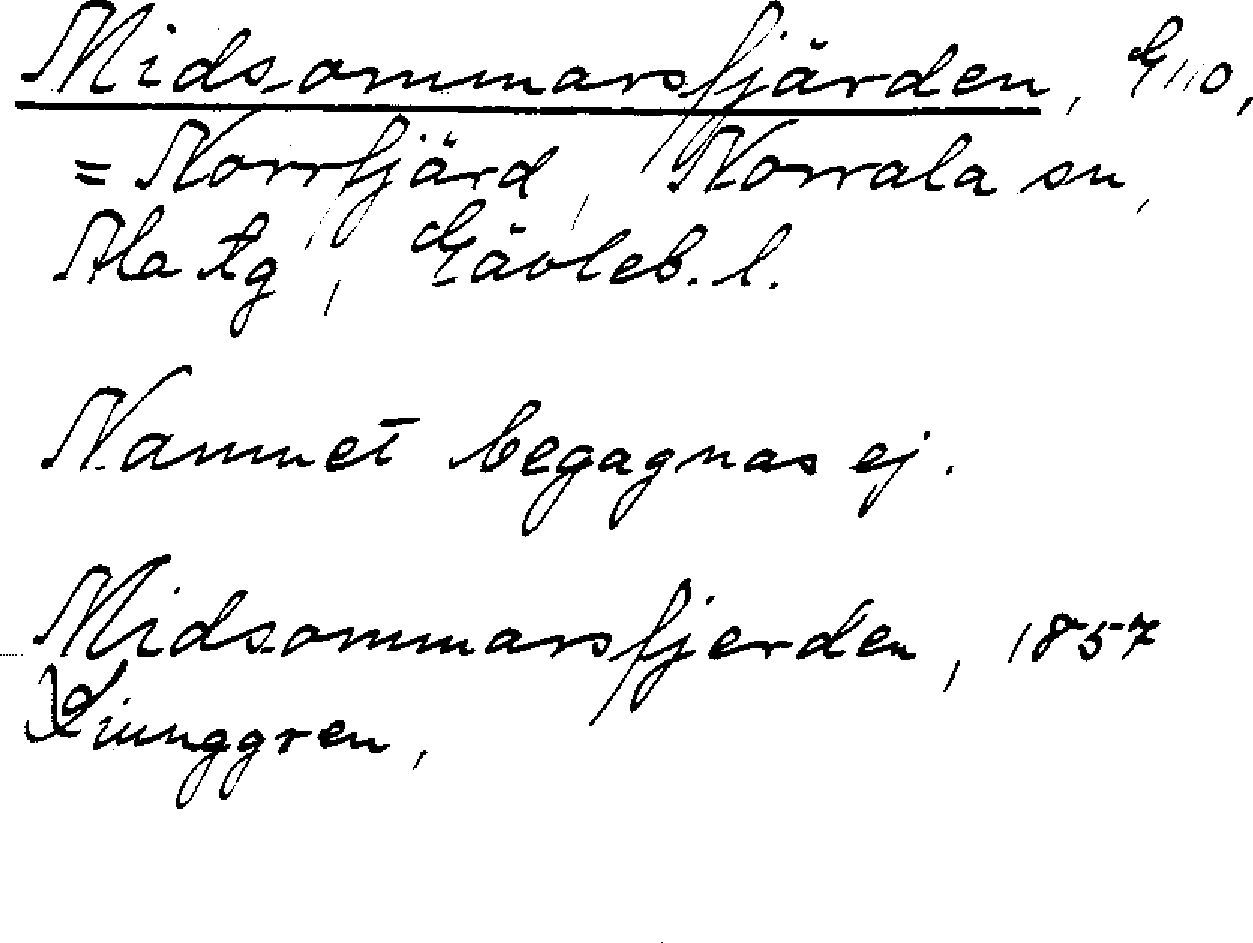 Midsommarsfjärden, G110,
= Norrfjärd, Norrala sn,
Ala tg, Gävleb. l.
Namnet begagnas ej.
Midsommarsfjerden, 1857
Liunggren,